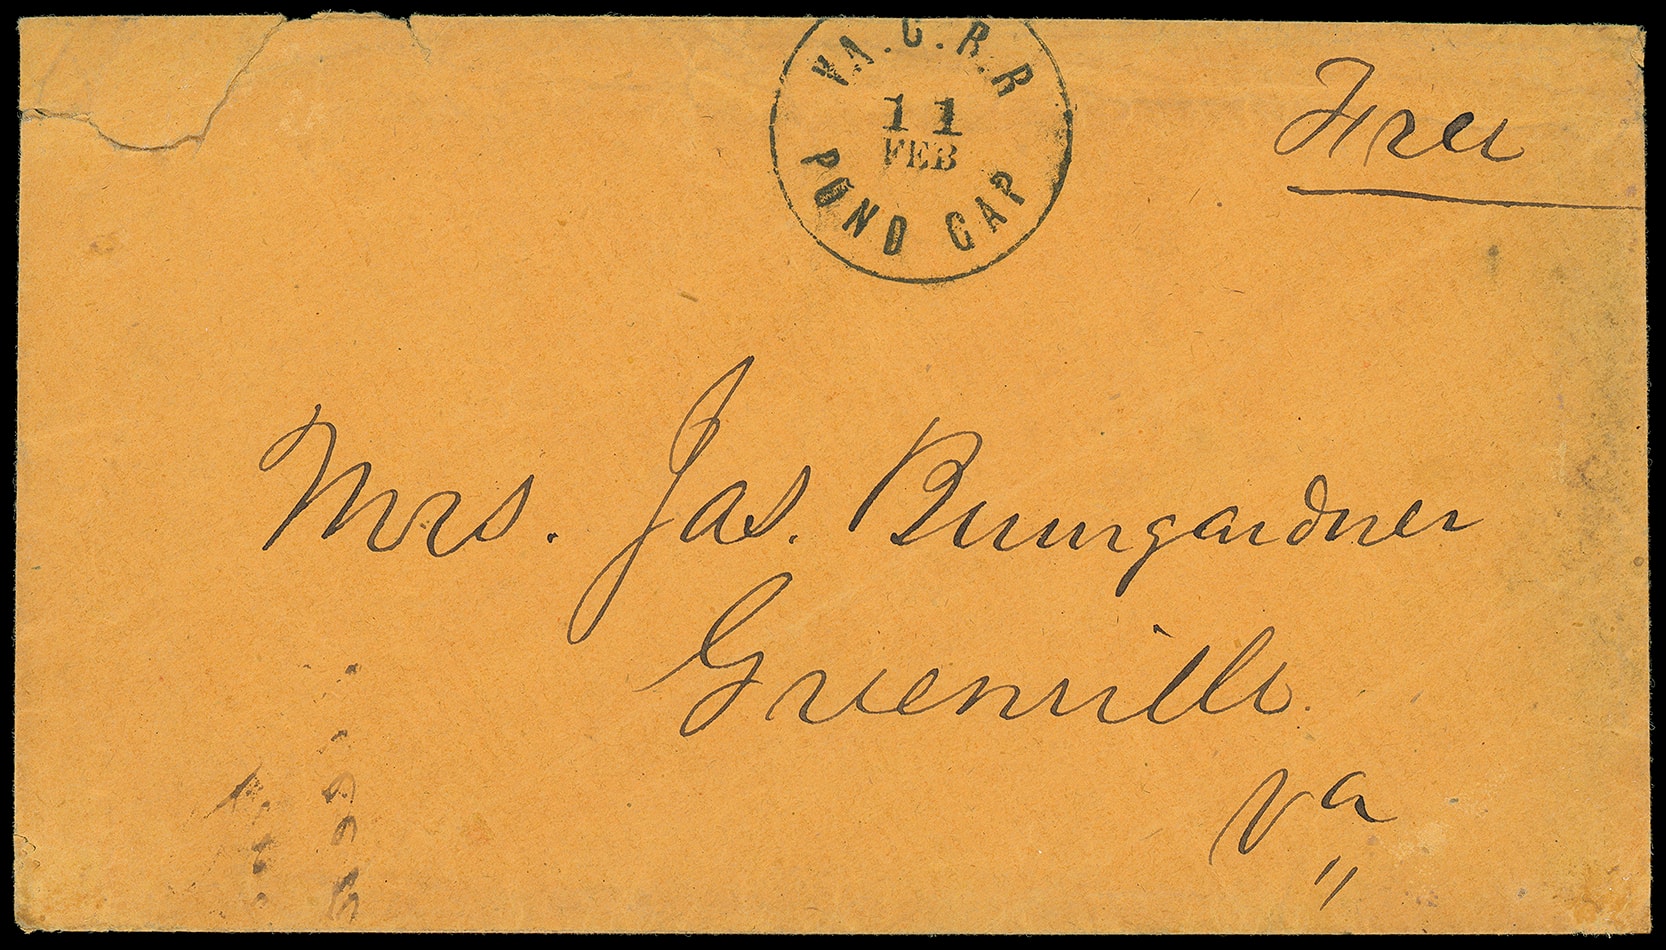 VA. C. R. R
11
FEB
POND GAP
Free
Mrs. Jas. Bumgardner
Greenville
Va